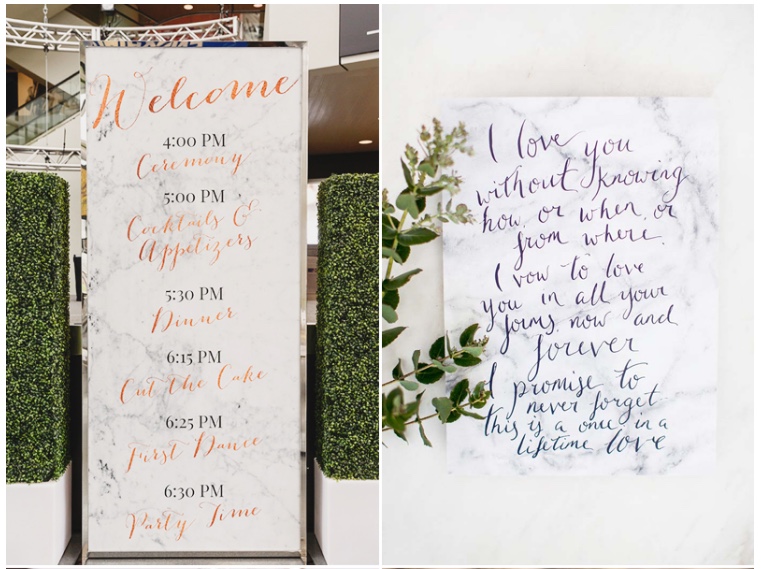 Welcome
4:00 PM
Ceremony
5:00 PM
Cocktails &
Appetizers
5:30 PM
Dinner
6:15 PM
Cut the Cake
6:25 PM
First Dance
6:30 PM
Party Time
I love you
without knowing
how, or when, or
from where.
I vow to love
you in all your
forms, now and
forever
I promise to
never forget
this is a once in a
lifetime love